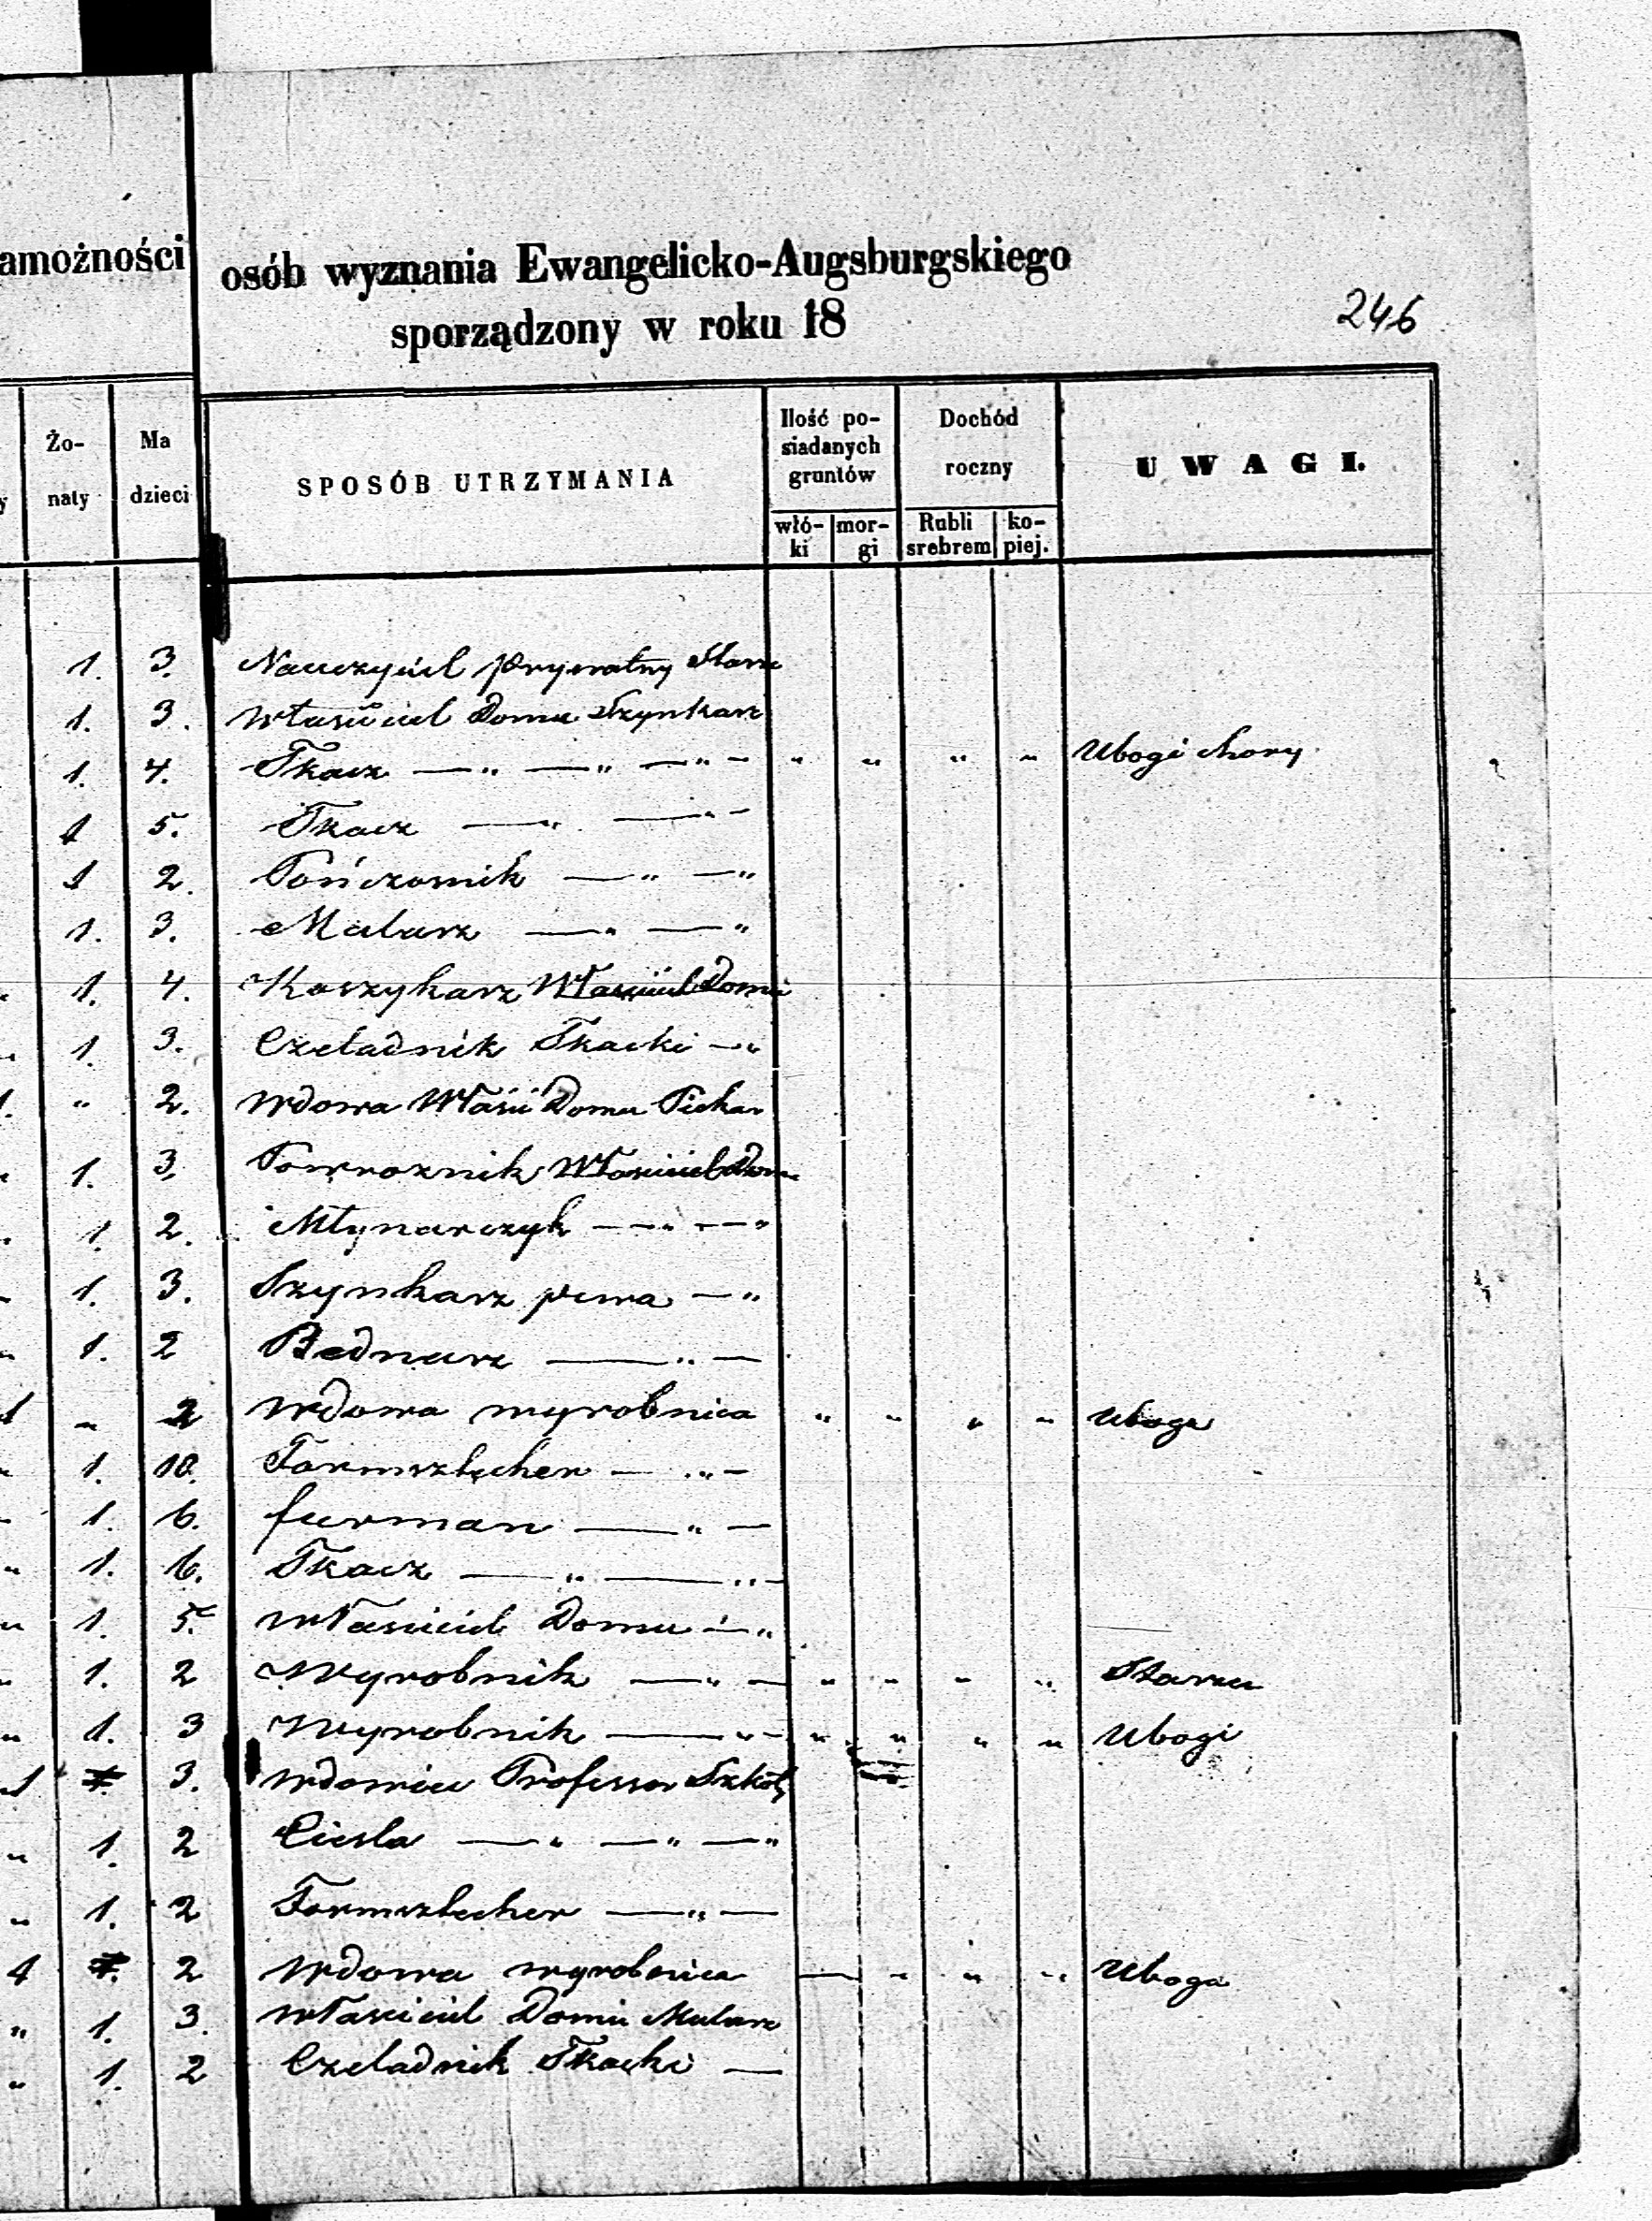 amożności osób wyznania Ewangelicko-Augsburgskiego
sporządzony w roku 18
246
Żo-
naty
Ma
dzieci
SPOSÓB UTRZYMANIA
Ilość po-
siadanych
gruntów
włó-
ki
mor-
gi
Dochód
roczny
Rubli
srebrem
ko-
piej.
UWAGI.
1. 3. Nauczyciel prywatny
1. 3. Właściciel Domu Szynkarz
1. 4. Tkacz — „ — „ — „ — „ „ „ „ Ubogi chory
1 5. Tkacz — „ — „ —
1 2. Pończosnik — „ — „
1. 3. Malarz — „ — „
1. 4. Koszykarz Właściciel Domu
„ 1. 3. Czeladnik Tkacki — „
1. „ 2. Wdowa Właści Domu Piekar
„ 1. 3. Powroznik Właściciel Dom
„ 1. 2. Młynarczyk — „ — „
„ 1. 3. Szynkarz piwa — „
„ 1. 2 Bednarz — „ —
1 „ 2 Wdowa wyrobnica „ „ „ „ Uboga
„ 1. 10. Formsztecher — „ —
„ 1. 6. furman — „ —
„ 1. 6. Tkacz — „ — „ —
„ 1. 5. Właściciel Domu — „
„ 1. 2 Wyrobnik — „ — „ „ „ „
„ 1. 3 Wyrobnik — „ — „ „ „ „ Ubogi
1 3. Wdowiec Professor Szkoły
„ 1. 2 Ciesla — „ — „ — „
„ 1. 2 Formsztecher — „ —
1 2 Wdowa wyrobnica — „ „ „ Uboga
„ 1. 3. Właściciel Domu Mularz
„ 1. 2 Czeladnik Tkacki —